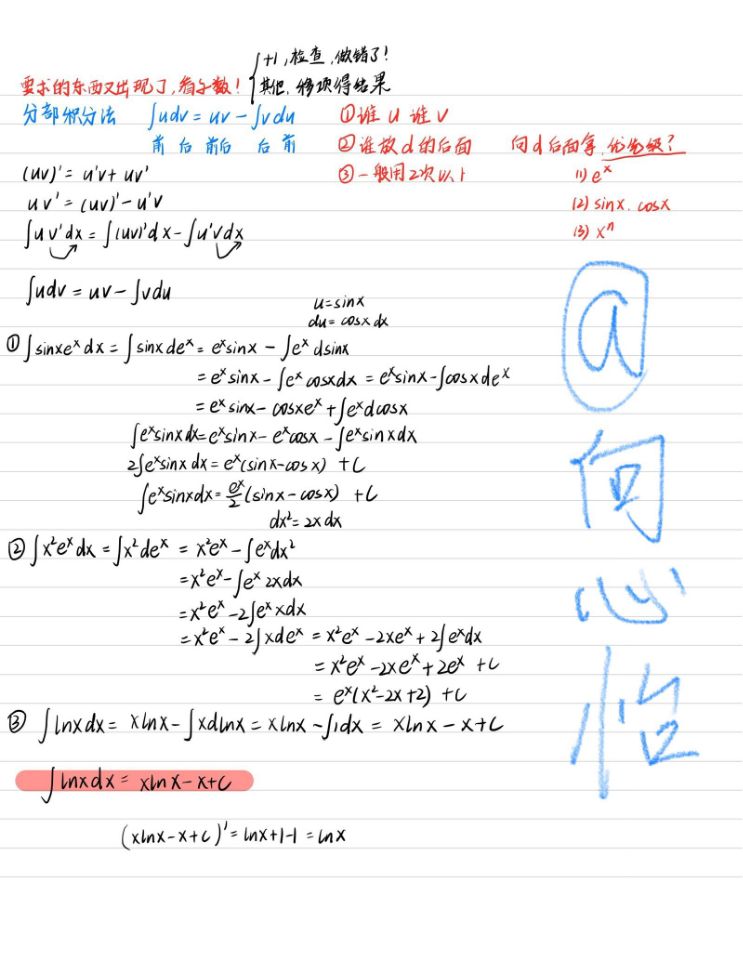 要求的东西又出现了,看系数! { +1,检查,做错了!
其他,移项得结果
分部积分法 ∫udv = uv - ∫vdu ①谁u 谁v
前后 前后 后前 ②谁放d的后面 向d后面拿,优先级?
(uv)' = u'v + uv' ③一般用2次以上 (1) eˣ
uv' = (uv)' - u'v (2) sinx. cosx
∫uv'dx = ∫(uv)'dx - ∫u'vdx (3) xⁿ
∫udv = uv - ∫vdu
u=sinx
du = cosx dx
① ∫sinxeˣdx = ∫sinxdeˣ = eˣsinx - ∫eˣdsinx
= eˣsinx - ∫eˣcosxdx = eˣsinx - ∫cosxdeˣ
= eˣsinx - cosxeˣ + ∫eˣdcosx
∫eˣsinxdx = eˣsinx - eˣcosx - ∫eˣsinxdx
2∫eˣsinxdx = eˣ(sinx-cosx) + C
∫eˣsinxdx = eˣ/2 (sinx - cosx) + C
dx² = 2xdx
② ∫x²eˣdx = ∫x²deˣ = x²eˣ - ∫eˣdx²
= x²eˣ - ∫eˣ2xdx
= x²eˣ - 2∫eˣxdx
= x²eˣ - 2∫xdeˣ = x²eˣ - 2xeˣ + 2∫eˣdx
= x²eˣ - 2xeˣ + 2eˣ + C
= eˣ(x² - 2x + 2) + C
③ ∫lnxdx = xlnx - ∫xdlnx = xlnx - ∫1dx = xlnx - x + C
∫lnxdx = xlnx - x + C
(xlnx - x + C)' = lnx + 1 - 1 = lnx
@
向
心
怡